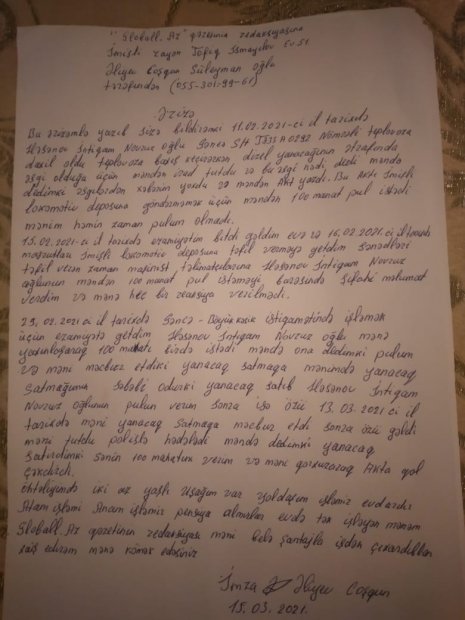 "Globall.Az" qəzetinin redaksiyasına
İmişli rayon Tofiq İsmayılov Ev 51
Əliyev Coşqun Süleyman oğlu
tərəfindən (055-301-99-61)
Ərizə
Bu ərizəmlə yazıb sizə bildirəmki 11.02.2021-ci il tarixdə
Həsənov İntiqam Novruz oğlu Gəncə Nömrəli teplovoza
daxil oldu teplovoza baxış keçirərkən, dizel yanacağının ətrafında
əsgi olduğu üçün məndən irad tutdu və bu əsgi nədi dedi məndə
dedimki əsgibizdən xəbərim yoxdu və məndən Akt yazdı. Bu Aktı İmişli
lokomotiv deposuna göndərməmək üçün məndən 100 manat pul istədi
mənim həmin zaman pulum olmadı.
15.02.2021-ci il tarixdə ezamiyyətim bitdi gəldim evə və 16.02.2021.ci il tarixdə
marşrutları İmişli lokomotiv deposuna təfil verməyə getdim sənədləri
təfil verən zaman maşinist təlimatçılarına Həsənov İntiqam Novruz
oğlunun məndən 100 manat pul istəməyi barəsində şifahi məlumat
verdim və mənə heç bir reaksiya verilmədi.
23.02.2021 ci il tarixdə Gəncə - Böyükkəsik istiqamətində işləmək
üçün ezamiyyətə getdim Həsənov İntiqam Novruz oğlu mənə
yaxınlaşaraq 100 manatı bizdə istədi məndə ona dedimki pulum
və məni məcbur etdiki yanacaq satmağa mənimdə yanacaq
satmağımın səbəbi odurki yanacaq satıb Həsənov İntiqam
Novruz oğlunun pulun verim sonra isə özü 13.03.2021-ci il
tarixdə məni yanacaq satmağa məcbur etdi sonra özü gəldi
məni tutdu polislə hədələdi məndə dedimki yanacaq
satırdımki sənin 100 manatını verim və məni qorxuzaraq Akta qol
çəkdirdi.
Əhtəliyimdə iki azyaşlı Uşağım var Yoldaşım işləmir evdardır
Atam işləmir Anam işləmir pensiya almırlar evdə tək işləyən mənəm
Globall.Az qəzetinin redaksiyası məni belə şantajla işdən çıxardıblar
xaiş edirəm mənə kömək edəsiniz
İmza Əliyev Coşqun
15.03.2021.